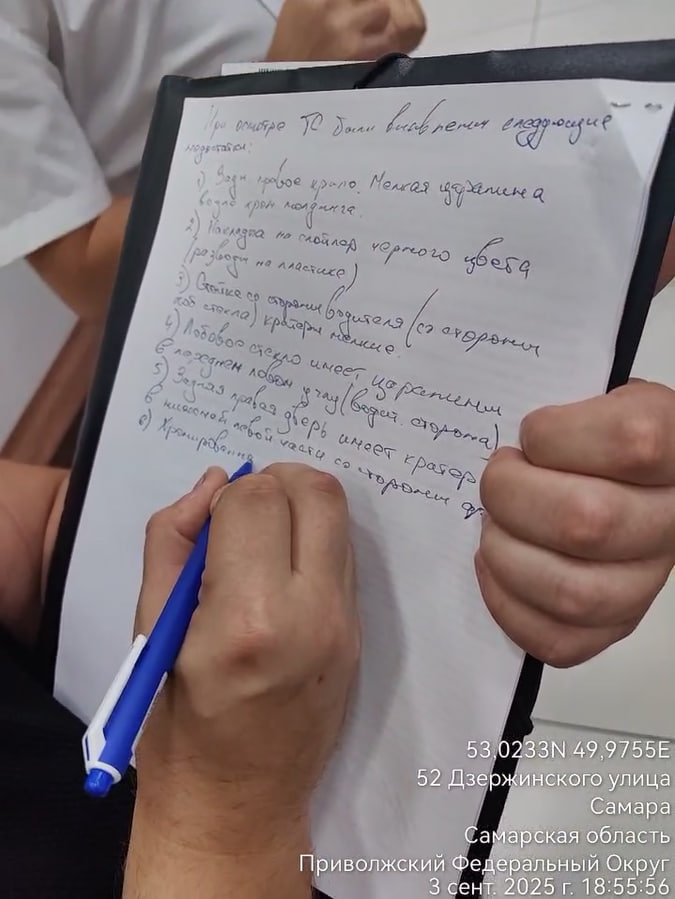 При осмотре ТС были выявлены следующие
недостатки:
1) Задн правое крыло. Мелкая царапина
возле хром молдинга.
2) Накладка на спойлер черного цвета
(разводы на пластике)
3) Стойка со стороны водителя (со стороны
лоб стекла) кратеры мелкие.
4) Лобовое стекло имеет царапины
в переднем левом углу (водит. сторона)
5) Задняя правая дверь имеет кратер
в нижней левой части со стороны
6) Хромированна
53,0233N 49,9755E
52 Дзержинского улица
Самара
Самарская область
Приволжский Федеральный Округ
3 сент. 2025 г. 18:55:56